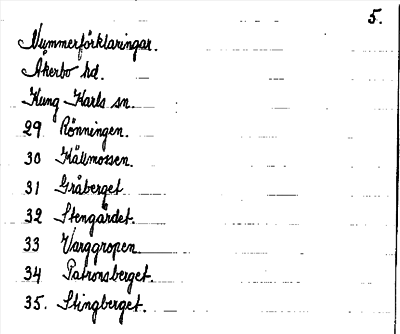 5.
Nummerförklaringar.
Åkerbo hd.
Kung Karls sn.
29 Rönningen.
30 Källmossen.
31 Gråberget
32 Stengärdet.
33 Varggropen.
34 Patronsberget.
35. Stingberget.